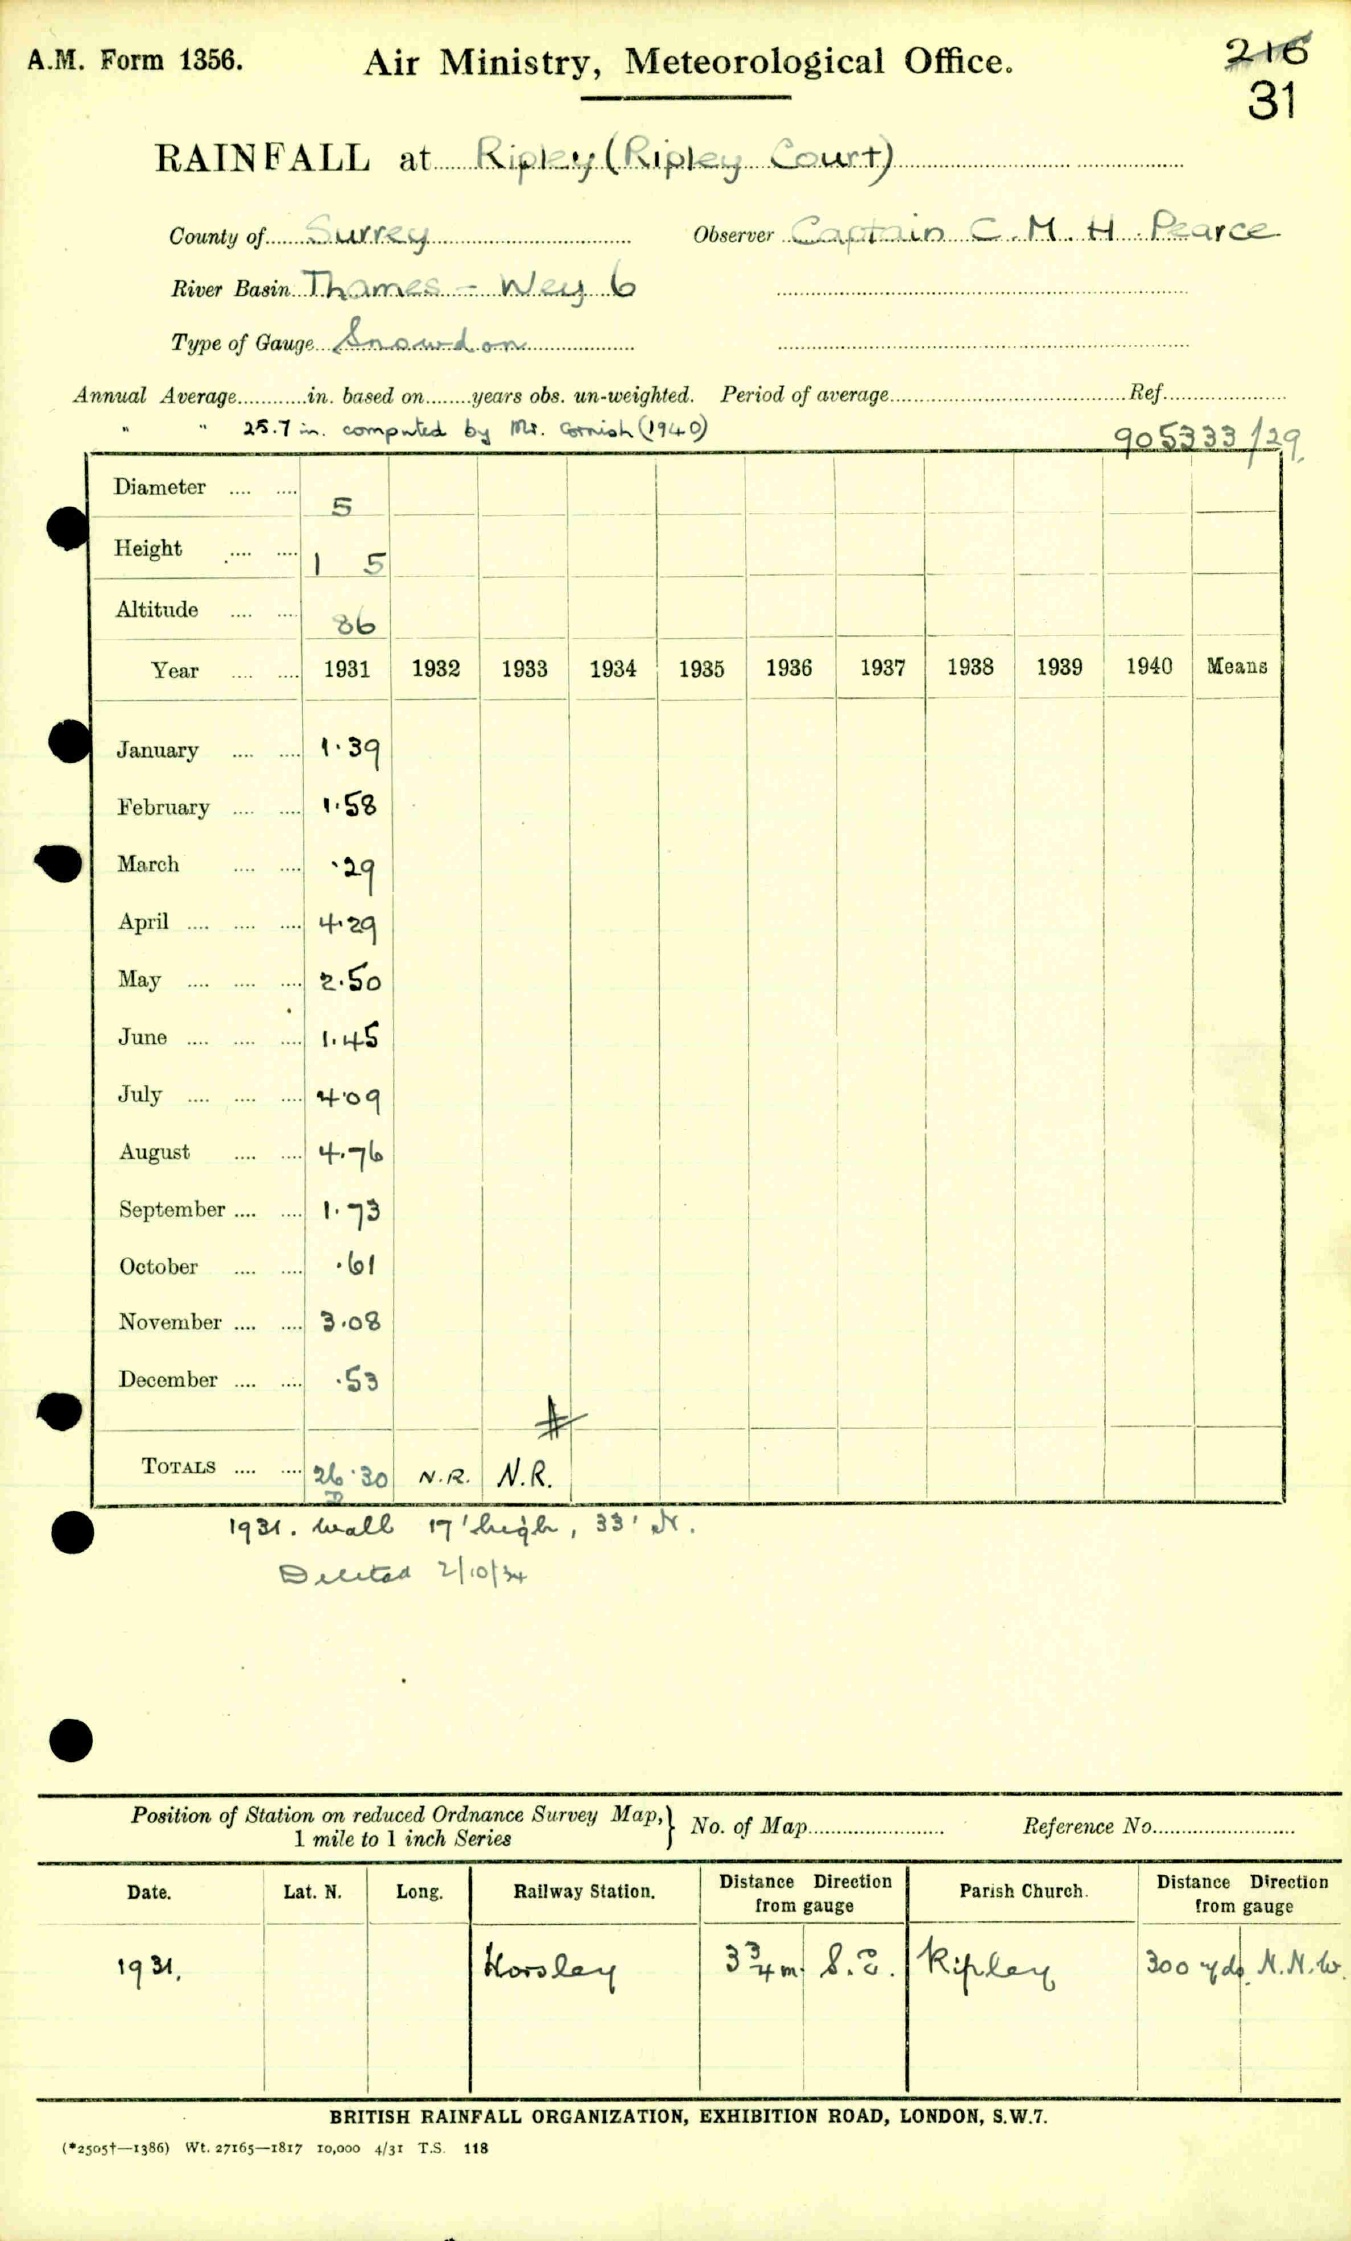 A.M. Form 1356. Air Ministry, Meteorological Office. 216
31
RAINFALL at Ripley (Ripley Court)
County of Surrey Observer Captain C. M. H. Pearce
River Basin Thames - Wey 6
Type of Gauge Snowdon
Annual Average............in. based on........years obs. un-weighted. Period of average.................... Ref....................
" " 25.7 in. computed by Mr. Cornish (1940) 905333/29.
Diameter .... .... 5
Height .... .... 1 5
Altitude .... .... 86
Year .... .... 1931 1932 1933 1934 1935 1936 1937 1938 1939 1940 Means
January .... .... 1.39
February .... .... 1.58
March .... .... .29
April .... .... .... 4.29
May .... .... .... 2.50
June .... .... .... 1.45
July .... .... .... 4.09
August .... .... 4.76
September .... .... 1.73
October .... .... .61
November .... .... 3.08
December .... .... .53
TOTALS .... .... 26.30 N.R. N.R.
1931. Wall 17' high, 33' N.
Deleted 2/10/34
Position of Station on reduced Ordnance Survey Map, } No. of Map.................... Reference No....................
1 mile to 1 inch Series
Date. Lat. N. Long. Railway Station. Distance Direction from gauge Parish Church. Distance Direction from gauge
1931. Horsley 3 3/4 m. S.E. Ripley 300 yds. N.N.W.
BRITISH RAINFALL ORGANIZATION, EXHIBITION ROAD, LONDON, S.W.7.
(*2505†—1386) Wt. 27165—1817 10,000 4/31 T.S. 118